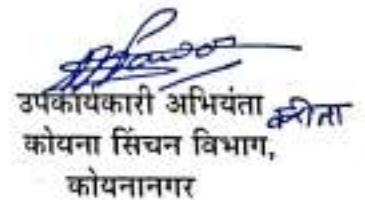 उपकार्यकारी अभियंता करीता
कोयना सिंचन विभाग,
कोयनानगर